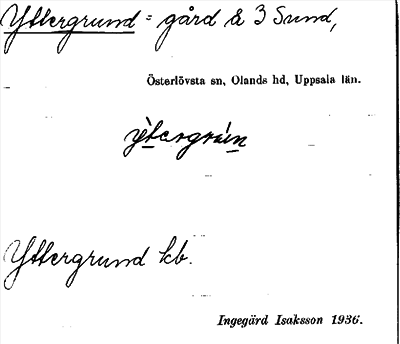 Yttergrund = gård å 3 Sund,
Österlövsta sn, Olands hd, Uppsala län.
Yttergrund kb.
Ingegärd Isaksson 1936.